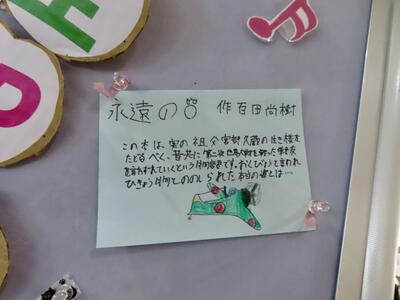 永遠の0 作 百田尚樹
この本は、実の祖父宮部久蔵の生き様を
たどるべく、昔共に第二次世界大戦を戦った戦友
を訪れていくという内容です。おくびょうと言われ
ひきょう者とののしられた本当の姿とは…